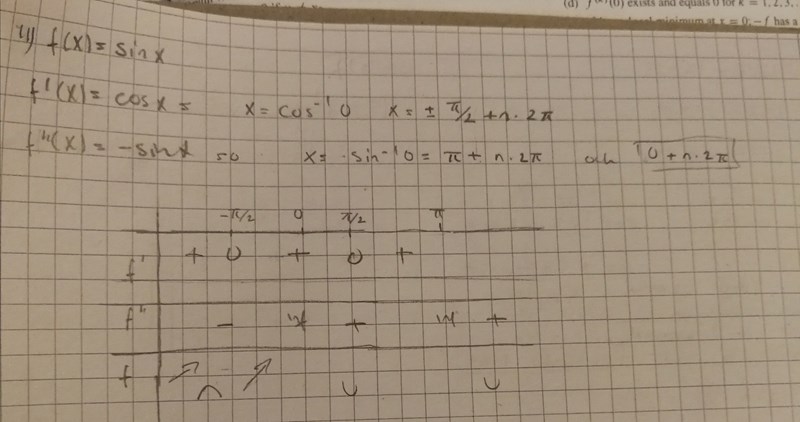 (d) f (0) exists and equals 0 for k = 1, 2, 3,
minimum at x = 0; −f has a
11) f(x) = sin x
f'(x) = cos x = x = cos⁻¹ 0 x = ± π/2 + n · 2π
f''(x) = -sin x = 0 x = sin⁻¹ 0 = π + n · 2π och 0 + n · 2π
-π/2 0 π/2 π
f' + 0 + 0 +
f'' - + +
f ↗ ∩ ↗ ∪ ∪